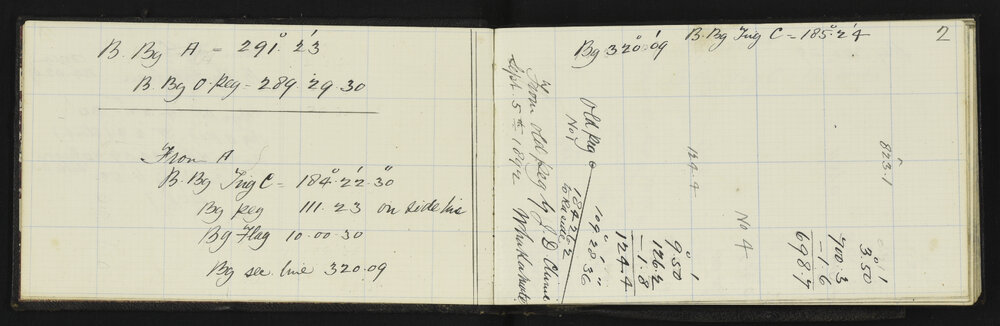 B. Bg A = 291°.23'
B. Bg O. Peg = 289.29.30
From A
B. Bg Trig C = 184°.22'.30"
Bg peg 111.23 on side line
Bg Flag 10.00.30
Bg sec. line 320.09
2
Bg 320°.09'
B. Bg Trig C = 185°.24'
From old peg by J. D. Climie
Sept. 5th 1892
Old peg
No 1
109°.28'.36"
184.26.2
to Rd side
9°.50'
126.2
-1.8
124.4
124.4
No 4
823.1
3°.50'
700.3
-1.6
698.7